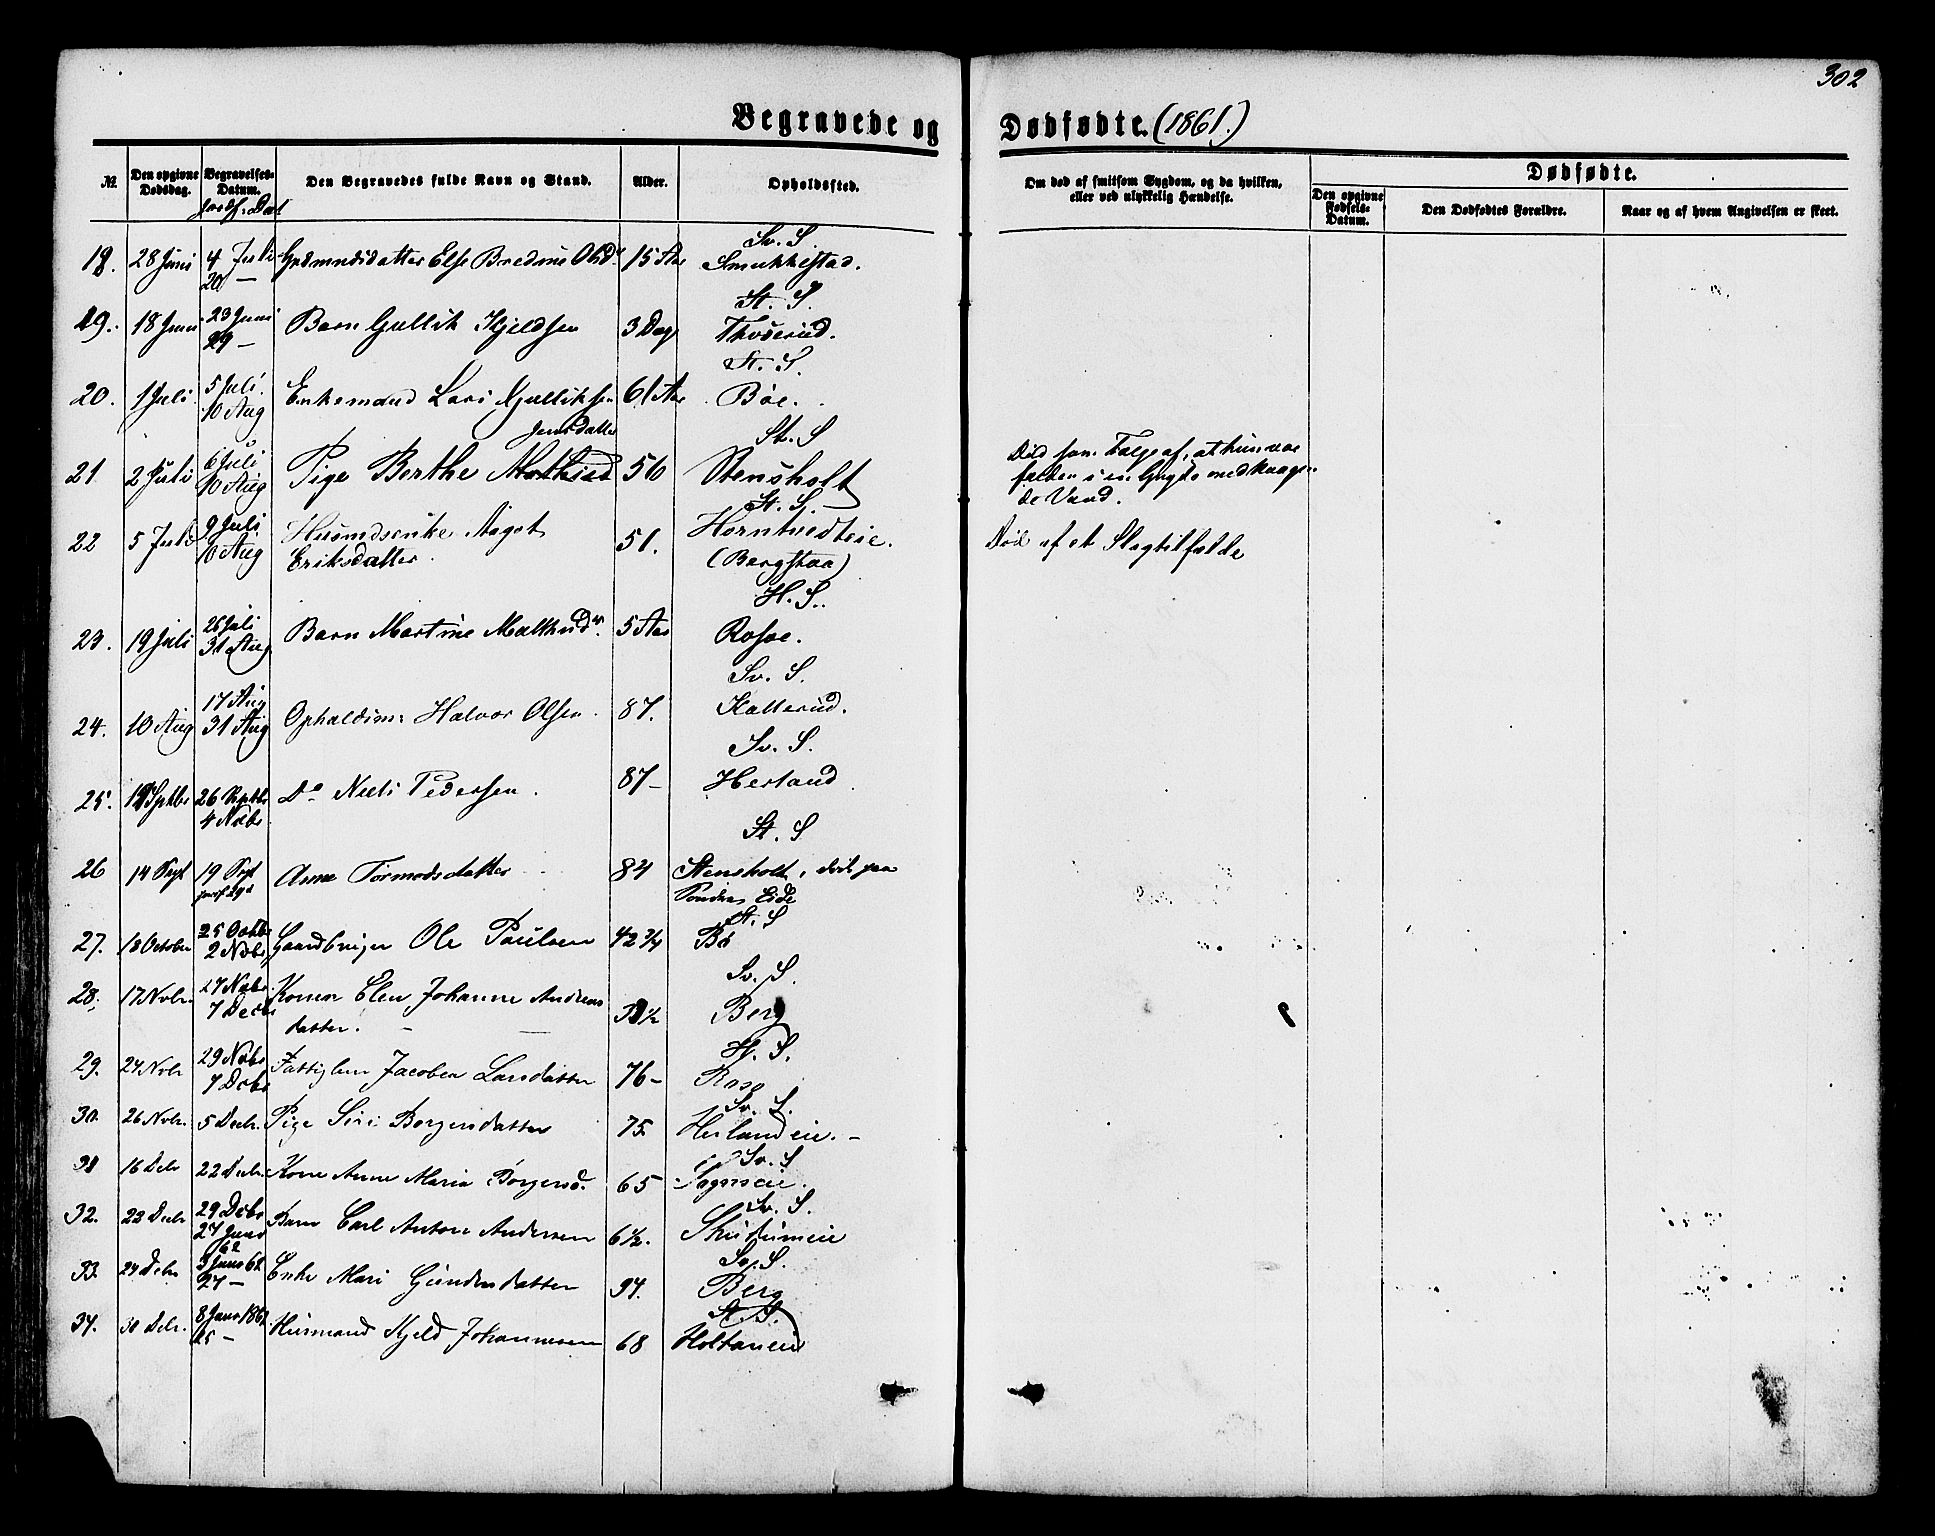 302
Begravede og Dødfødte. (1861.)
№.
Den opgivne Dødsdag.
Begravelses-Datum.
Jordf: Dat
Den Begravedes fulde Navn og Stand.
Alder.
Opholdssted.
Om død af smitsom Sygdom, og da hvilken, eller ved ulykkelig Hændelse.
Dødfødte.
Den opgivne Fødsels-Datum.
Den Dødfødtes Forældre.
Naar og af hvem Angivelsen er skeet.
Sv. S.
18. 28 Juni 4 Juli Else Bredine Olsd. 15 Aar Smukkestad.
20 —
St. S.
19. 18 Juni 23 Juni Barn Gullik Kjeldsen 3 Dag Thoserud.
29 —
St. S.
20. 1 Juli 5 Juli Enkemand Lars Gulliksen 61 Aar Bøe.
10 Aug
Jensdatter St. S
21. 2 Juli 6 Juli Pige Berthe 56 Stensholt
10 Aug
Død som Følge af, at hun var
falden i en Gryde med kaagen-
de Vand.
St. S.
22 5 Juli 9 Juli Husmdsenke Aaget 51. Horntvedteie.
10 Aug Eriksdatter. (Bergstaa)
Død af et Slagtilfælde
H. S.
23. 19 Juli 26 Juli Barn Martine 5 Aar
31 Aug
Sv. S.
24. 10 Aug 17 Aug Opholdsm: Halvor Olsen. 87. Katterud.
31 Aug
Sv. S.
25. 19 Septbr 26 Septbr Do Niels Pedersen. 87 — Herland
4 Novbr
St. S
26 14 Sept 19 Sept Anne Tormodsdatter 84 Stensholt, død paa
Eide
St. S
27. 18 October 25 Octbr Gaardbruger Ole Paulsen 42 3/4 Bö
2 Novbr
Sv. S.
28. 17 Novbr. 27 Novbr. Konen Elen Johanne Andreas Berg
7 Decbr datter.
H. S.
29. 24 Novbr 29 Novbr Fattiglem Jacobea Larsdatter 76 —
7 Decbr
Sv. S.
30. 26 Novbr. 5 Decbr. Pige Siri Borgersdatter 75. Herlandeie. —
Sv. S
31 16 Decbr 22 Decbr. Kone Anne Maria Borgersd. 65
Sv. S.
32. 23 Decbr 29 Decbr Barn Carl Anton Andersen 6 1/2.
27 Janr
62
Sv. S.
33. 24 Decbr 3 Janr 62 Enke Mari Gundersdatter 94. Berg
27 —
St. S.
34. 30 Decbr. 8 Janr 1862 Husmand Kjeld Johannesen 68 Holtaneie
25 —